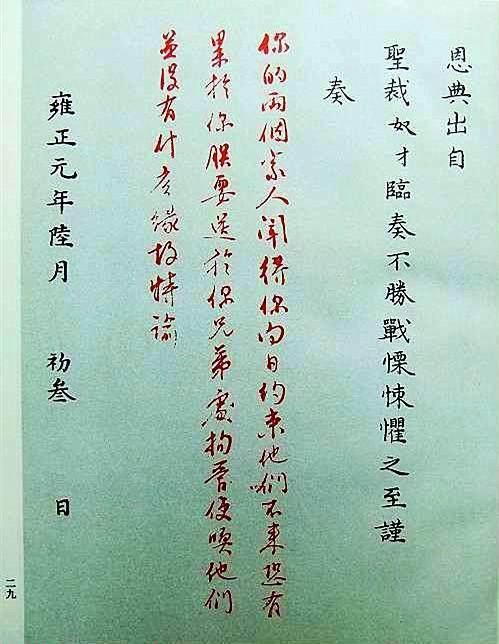 恩典出自
聖裁奴才臨奏不勝戰慄悚懼之至謹
奏
你的兩個家人聞得你向日約束他們不來恐有
累於你朕要送於你兄弟處拘管使喚他們
並没有什庅緣故特諭
雍正元年陸月 初叁 日
二九